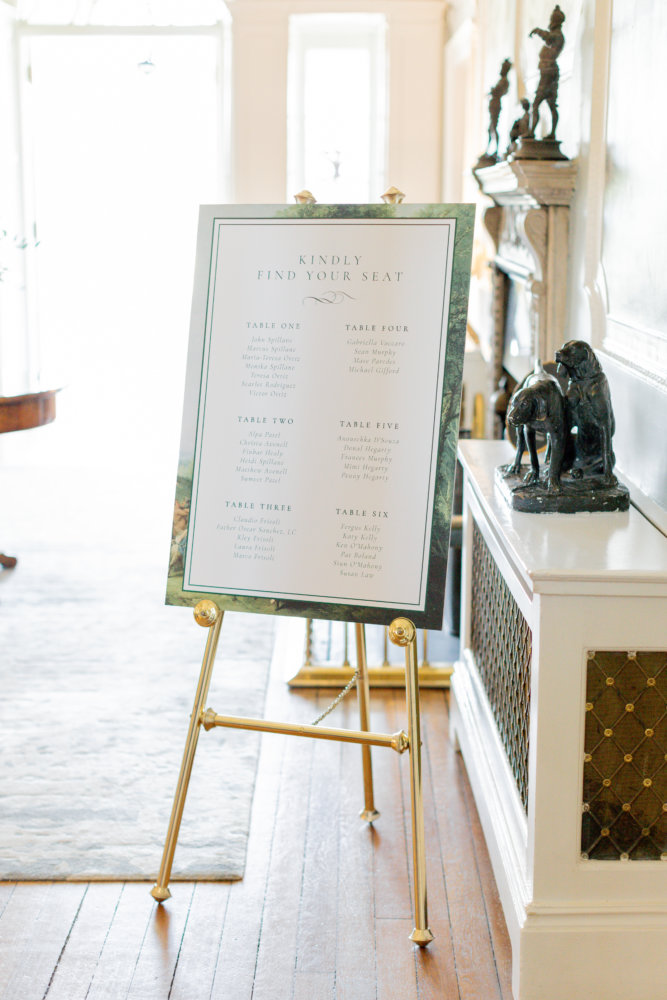 KINDLY
FIND YOUR SEAT
TABLE ONE
John Spillane
Marcus Spillane
Maria-Teresa Ortiz
Monika Spillane
Teresa Ortiz
Searles Rodriguez
Victor Ortiz
TABLE TWO
Alpa Patel
Chelsea Avenell
Finbar Healy
Heidi Spillane
Matthew Avenell
Sumeet Patel
TABLE THREE
Claudio Frisoli
Father Oscar Sanchez, LC
Kley Frisoli
Laura Frisoli
Marco Frisoli
TABLE FOUR
Gabriella Vaccaro
Sean Murphy
Mave Paredes
Michael Gifford
TABLE FIVE
Anouschka D'Souza
Donal Hegarty
Frances Murphy
Mimi Hegarty
Penny Hegarty
TABLE SIX
Fergus Kelly
Katy Kelly
Ken O'Mahony
Pat Boland
Siun O'Mahony
Susan Law